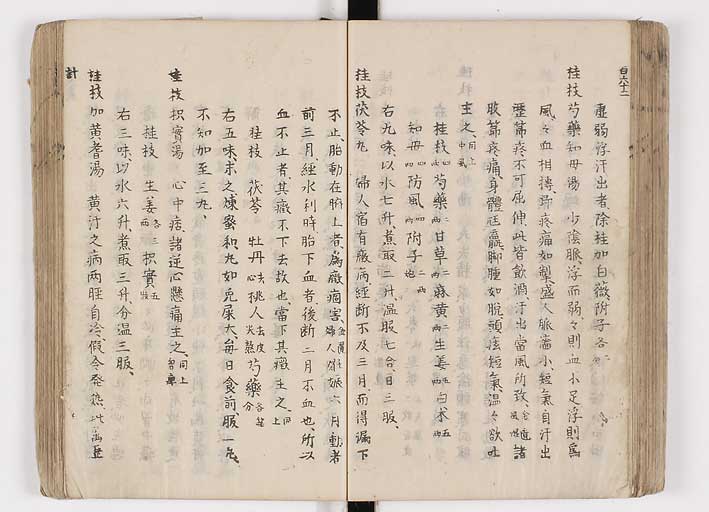 百六十二
虛弱浮汗出者除桂加白薇附子各
桂枝芍藥知母湯 少陰脈浮而弱々則血不足浮則爲
風々血相搏即疼痛如掣盛人脈濇小短氣自汗出
歷節疼不可屈伸此皆飲酒汗出當風所致 諸
肢節疼痛身體尫羸脚腫如脫頭眩短氣溫々欲吐
主之 同上中風
桂枝 四兩 芍藥 三兩 甘草 二兩 麻黃 二兩 生姜 五兩 白朮 五兩
知母 四兩 防風 四兩 附子 二兩炮
右九味以水七升煮取二升溫服七合日三服、
桂枝茯苓丸 婦人宿有癥病經斷不及三月而得漏下
不止胎動在臍上者爲癥痼害 金匱婦人妊娠 六月動者
前三月經水利時胎下血者後斷三月不血也所以
血不止者其癥不下去故也當下其癥主之、同上
桂枝 茯苓 牡丹 去心 桃人 去皮尖熬 芍藥 各等分
右五味末之煉蜜和丸如兎屎大每日食前服一丸、
不知加至三丸、
桂枝枳實湯 心中痞諸逆心懸痛主之、同上
桂枝 生姜 各三兩 枳實 五枚
右三味以水六升煮取三升分溫三服、
桂枝加黃耆湯 黃汗之病兩脛自冷假令發熱此
計